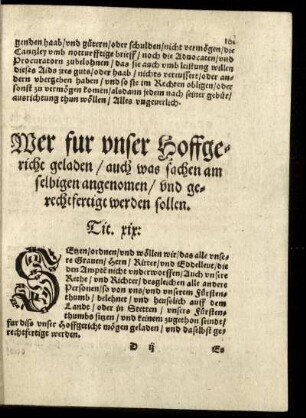 genden haab/vnd gütern/oder schulden/nicht vermögen/die
Cantzley vnd notturfftige brieff/ noch die Aduocaten/vnd
Procuratorn zubelohnen/ das sie auch vmb leistung willen
dieses Aids jres guts/oder haab/ nichts vereussert/oder an-
dern vbergeben haben/ vnd so sie im Rechten obligen/oder
sonst zu vermögen komen/alsdann jedem nach seiner gebür/
ausrichtung thun wöllen/ Alles vngeuerlich.
Wer fur vnser Hoffge-
richt geladen/auch was sachen am
selbigen angenomen/ vnd ge-
rechtfertigt werden sollen.
Tit. xix:
SEtzen/ordnen/vnd wöllen wir/das alle vnse-
re Grauen/ Hern/ Ritter/vnd Eddelleut/die
den Ampte nicht vnderworffen/ Auch vnsere
Rethe/ vnd Richter/desgleichen alle andere
Personen/so von vns/vnd vnserem Fürsten-
thumb/ belehnet/ vnd heuslich auff dem
Lande/ oder in Stetten/ vnsers Fürsten-
thumbs sitzen/ vnd keinem zugethon seindt/
fur diss vnser Hoffgericht mögen geladen/ vnd daselbst ge-
rechtfertigt werden.
D ij Es